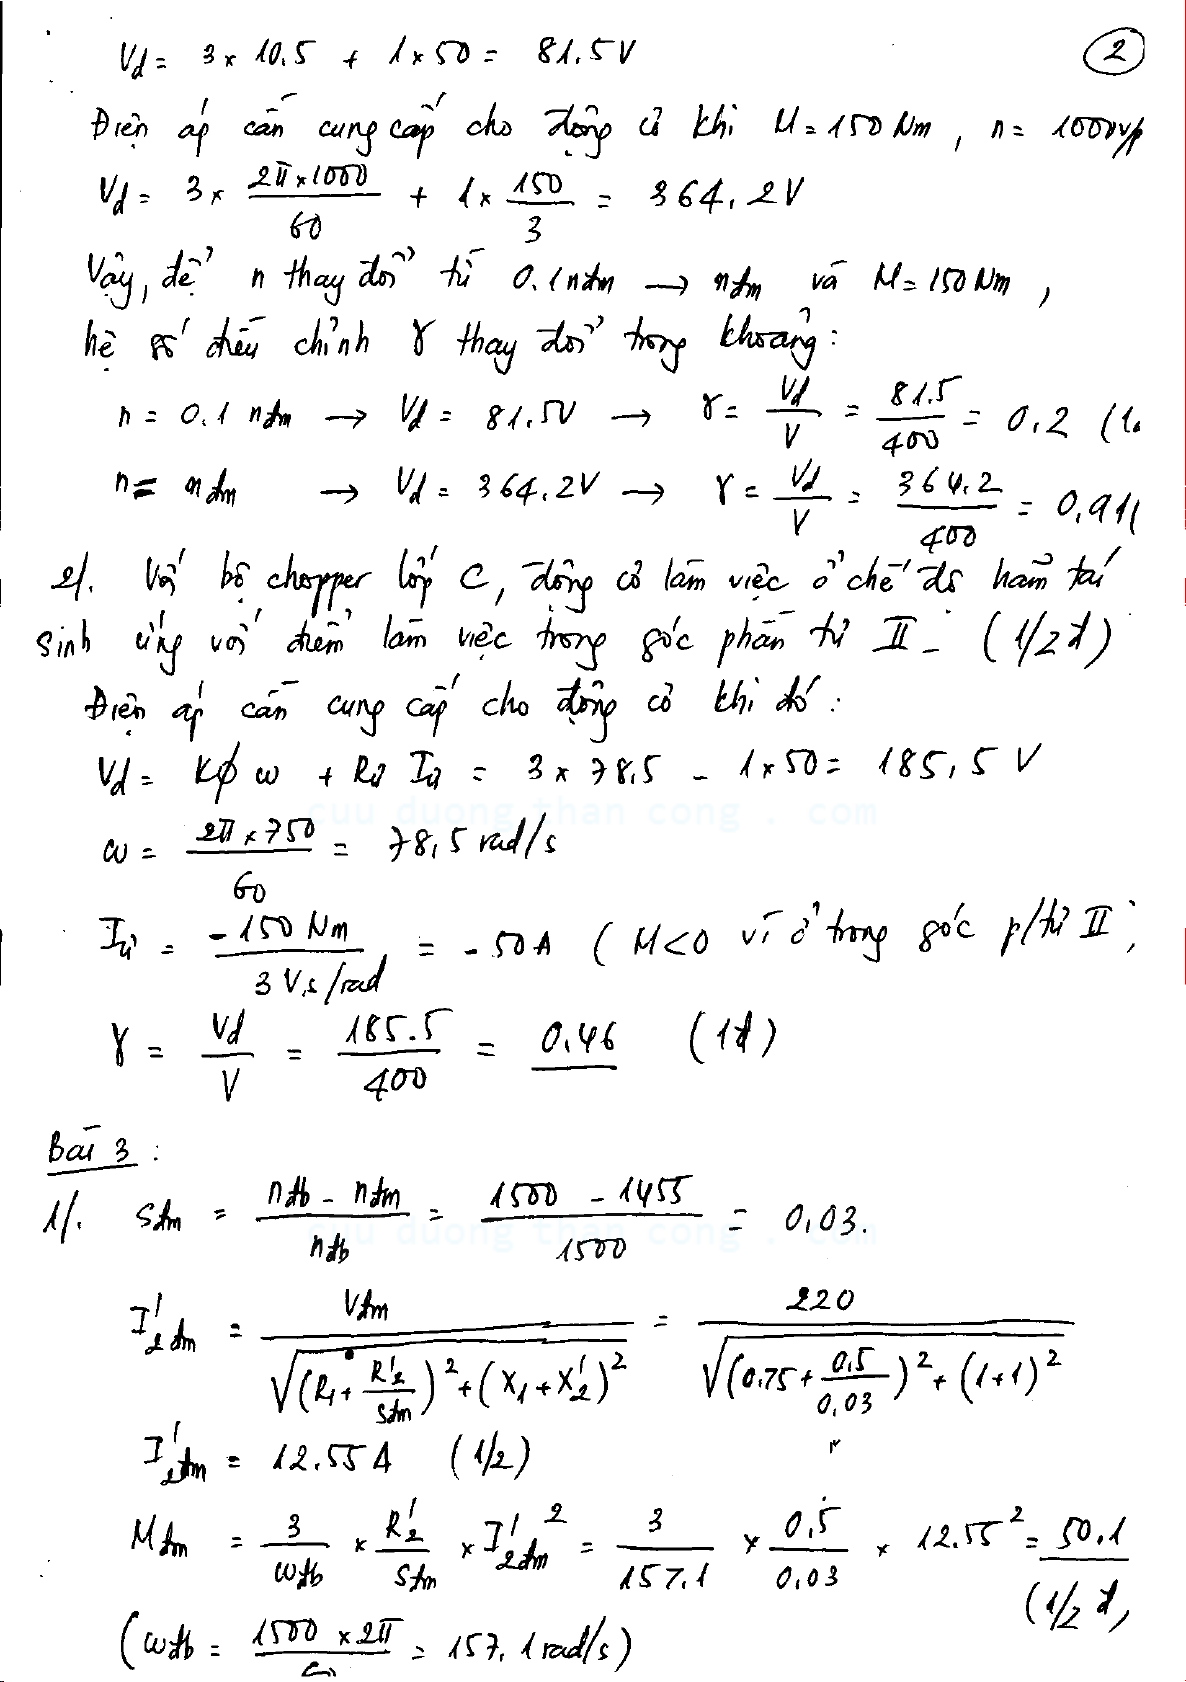 2
Vđ = 3 × 10.5 + 1 × 50 = 81.5V
Điện áp cần cung cấp cho động cơ khi M = 150 Nm, n = 1000v/p
Vđ = 3 × (2π × 1000)/60 + 1 × 150/3 = 364.2V
Vậy, để n thay đổi từ 0.1nđm → nđm và M = 150 Nm,
hệ số điều chỉnh γ thay đổi trong khoảng:
n = 0.1 nđm → Vđ = 81.5V → γ = Vđ/V = 81.5/400 = 0.2 (1.
n = nđm → Vđ = 364.2V → γ = Vđ/V = 364.2/400 = 0.91(
2/. Với bộ chopper lớp C, động cơ làm việc ở chế độ hãm tái
sinh ứng với điểm làm việc trong góc phần tư II. (1/2 đ)
Điện áp cần cung cấp cho động cơ khi đó:
Vđ = Kϕ ω + Rư Iư = 3 × 78.5 - 1 × 50 = 185,5 V
cuu duong than cong . com
ω = (2π × 750)/60 = 78,5 rad/s
Iư = (-150 Nm)/(3 V.s/rad) = -50A (M<0 vì ở trong góc p/tư II,
γ = Vđ/V = 185.5/400 = 0.46 (1đ)
Bài 3:
1/. sđm = (nđb - nđm)/nđb = (1500 - 1455)/1500 = 0,03.
cuu duong than cong . com
I'2đm = Vđm/√((R1 + R'2/sđm)² + (X1 + X'2)²) = 220/√((0.75 + 0.5/0,03)² + (1+1)²)
I'2đm = 12.55A (1/2)
Mđm = 3/ωđb × R'2/sđm × I'2đm² = 3/157.1 × 0,5/0,03 × 12.55² = 50.1
(1/2 đ)
(ωđb = (1500 × 2π)/60 = 157.1 rad/s)